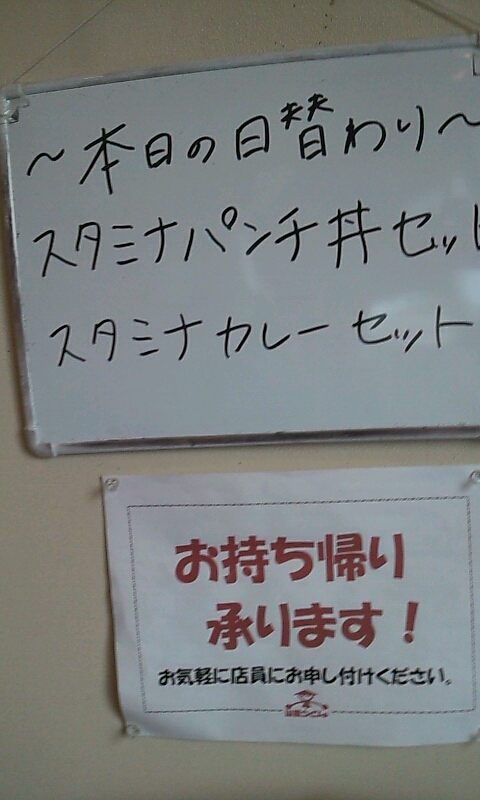 ～本日の日替わり～
スタミナパンチ丼セット
スタミナカレーセット
お持ち帰り
承ります！
お気軽に店員にお申し付けください。